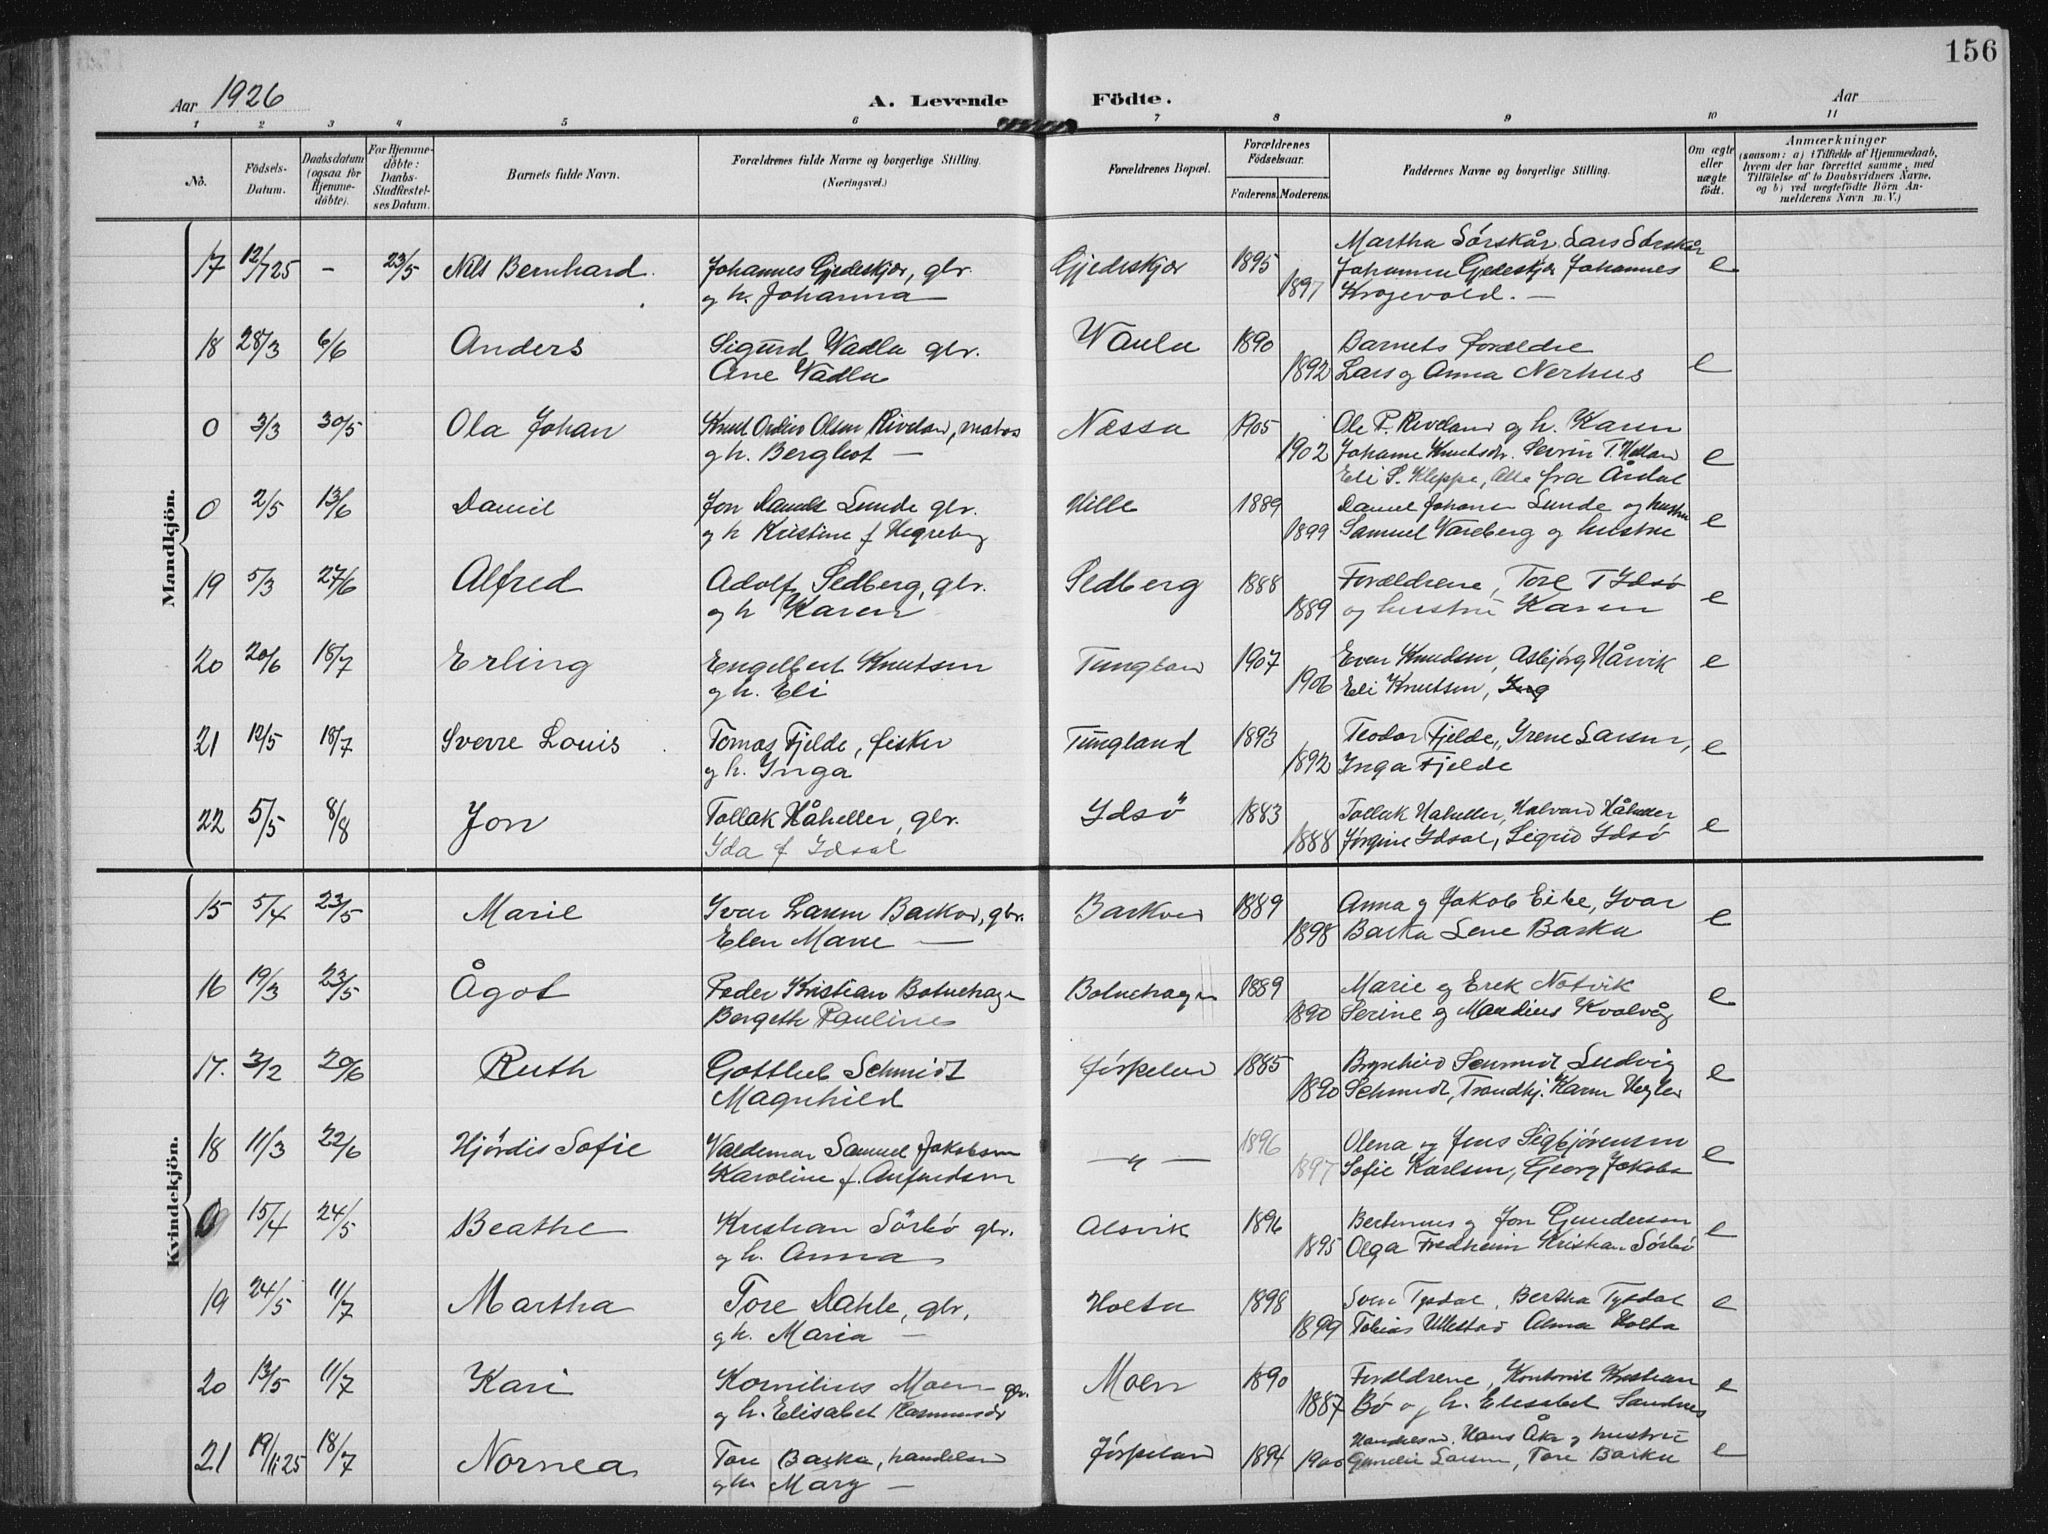 156
Aar 1926
A. Levende Födte.
Aar
1 2 3 4 5 6 7 8 9 10 11
No.
Födsels-Datum.
Daabsdatum (ogsaa for Hjemme-döbte).
For Hjemme-döbte: Daabs-Stadfæstel-ses Datum.
Barnets fulde Navn.
Forældrenes fulde Navne og borgerlige Stilling.
(Næringsvei.)
Forældrenes Bopæl.
Forældrenes Födselsaar.
Faderens. Moderens.
Faddernes Navne og borgerlige Stilling.
Om ægte eller uægte födt.
Anmærkninger
(saasom: a) i Tilfælde af Hjemmedaab,
hvem der har forrettet samme, med
Tilföielse af to Daabsvidners Navne,
og b) ved uægtefödte Börn An-
melderens Navn m. V.)
Mandkjön.
Martha Sørskår, Lars Sørskår
17 12/7 25 – 23/5 Nils Bernhard. Johannes Gjedeskjær, gbr. Gjedeskjær 1895 Johanna Gjedeskjær Johannes e
og h. Johanna — 1897 Krogevold. —
18 28/3 6/6 Anders Sigurd Vadla gbr. Vaula 1890 Barnets forældre
Ane Vadla 1892 Lars og Anna Nerhus e
0 3/3 30/5 Ola Johan Knut Olsen Riveland, matros Næssa 1905 Ole P. Riveland og h. Karen
og h. Bergliot — 1902 Johanne Knutsdr. Sevrin T. e
Eli S. Kleppa, Alle fra Årdal
0 2/5 13/6 Daniel Jon Lunde gbr. Hille 1889 Daniel Johansen Lunde og hustru
og h Kristine f Hegreberg 1899 Samuel Vareberg og hustru e
19 5/3 27/6 Alfred Adolf Sedberg, gbr. Sedberg 1888 Forældrene, Tore T Idsø
og h Karen 1889 og hustru Karen e
20 20/6 18/7 Erling Engelbert Knutsen Tungland 1907 Even Knudsen, Asbjørg Hårvik e
og h. Eli 1906 Eli Knutsen, Ing
21 12/5 18/7 Sverre Louis Tomas Fjelde, fisker Tungland 1893 Teodor Fjelde, Irene Larsen, e
og h. Inga 1892 Inga Fjelde
22 5/5 8/8 Jon Tollak Håheller, gbr. Idsø 1883 Tollak Håheller, Halvard Håheller
Ida f Idsal 1888 Jørgine Idsal, Sigrid Idsø e
Kvindekjön.
15 5/4 23/5 Marie Ivar Larsen Barkved, gbr. Barkved 1889 Anna og Jakob Eike, Ivar
Elen Marie — 1898 Barka Lene Barka e
16 19/3 23/5 Ågot Peder Kristian Botnehagen Botnehagen 1889 Marie og Erek Notvik
Bergeth Pauline 1890 Serine og Mandius Kvalvåg e
17. 3/2 20/6 Ruth Gottlieb Schmidt Jørpeland 1885 Brynhild Schmidt Ludvig e
Magnhild 1890 Schmidt, Trondhj. Karen
18 11/3 22/6 Hjördis Sofie Valdemar Samuel Jakobsen — " — 1896 Olena og Jens Sigbjørensen
Karoline f. Anfindsen 1897 Sofie Karlsen, Georg Jakobs e
0 15/4 24/5 Beathe Kristian Sörbö gbr. Alsvik 1896 og Jon Gundersen
og h. Anna 1895 Olga Fredheim Kristian Sörbö e
19 24/5 11/7 Martha Tore Dahle, gbr. Holta 1898 Sven Tysdal, Bertha Tysdal e
og h. Maria — 1899 Tobias Ullestad Alma Holta
20 13/5 11/7 Kari Kornelius Moen gbr. Moen 1890 Forældrene, Kristian e
og h. Elisabet Rasmusdr 1887 Bö og h. Elisabet Sandnes
21 19/11 25 18/7 Nornea Tore Barka, handelsm Jørpeland 1894 1900 Handelsm. Hans Åke og hustru e
og h. Mary — Larsen, Tore Barka